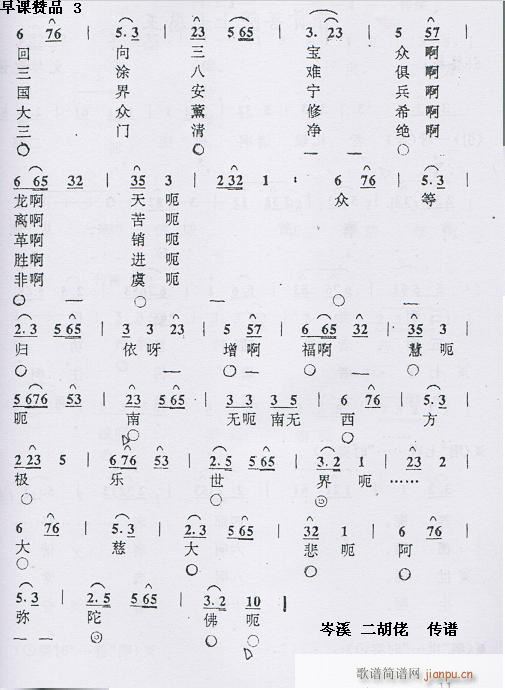 早课赞品 3
6 76 | 5.3 | 23 5 65 | 3 23 | 5 57 |
回 向 三 宝 众 啊
三 涂 八 难 俱 啊
国 界 安 宁 兵 啊
大 众 薰 修 希 啊
三 门 清 净 绝 啊
6 65 32 | 35 3 | 2 32 1 : 6 76 | 5.3 |
龙啊 天 呃 众 等
离啊 苦 呃
革啊 销 呃
胜啊 进 呃
非啊 虞 呃
2.3 5 65 | 3 3 23 | 5 57 | 6 65 32 | 35 3 |
归 依呀 增啊 福啊 慧呃
5 676 53 | 23 5 65 | 3 3 5 3 | 6 76 | 5.3 |
呃 南 无呃 南无 西 方
2 23 5 | 6 76 53 | 2.5 5 65 | 3.2 1 | 23 2 |
极 乐 世 界 呃……
6 76 | 5.3 | 2.3 5 65 | 32 1 | 6 76 |
大 慈 大 悲呃 阿
5.3 | 2.3 5 65 | 3.2 10 ‖
弥 陀 佛 呃
岑溪 二胡佬 传谱
歌谱简谱网
jianpu.cn
11